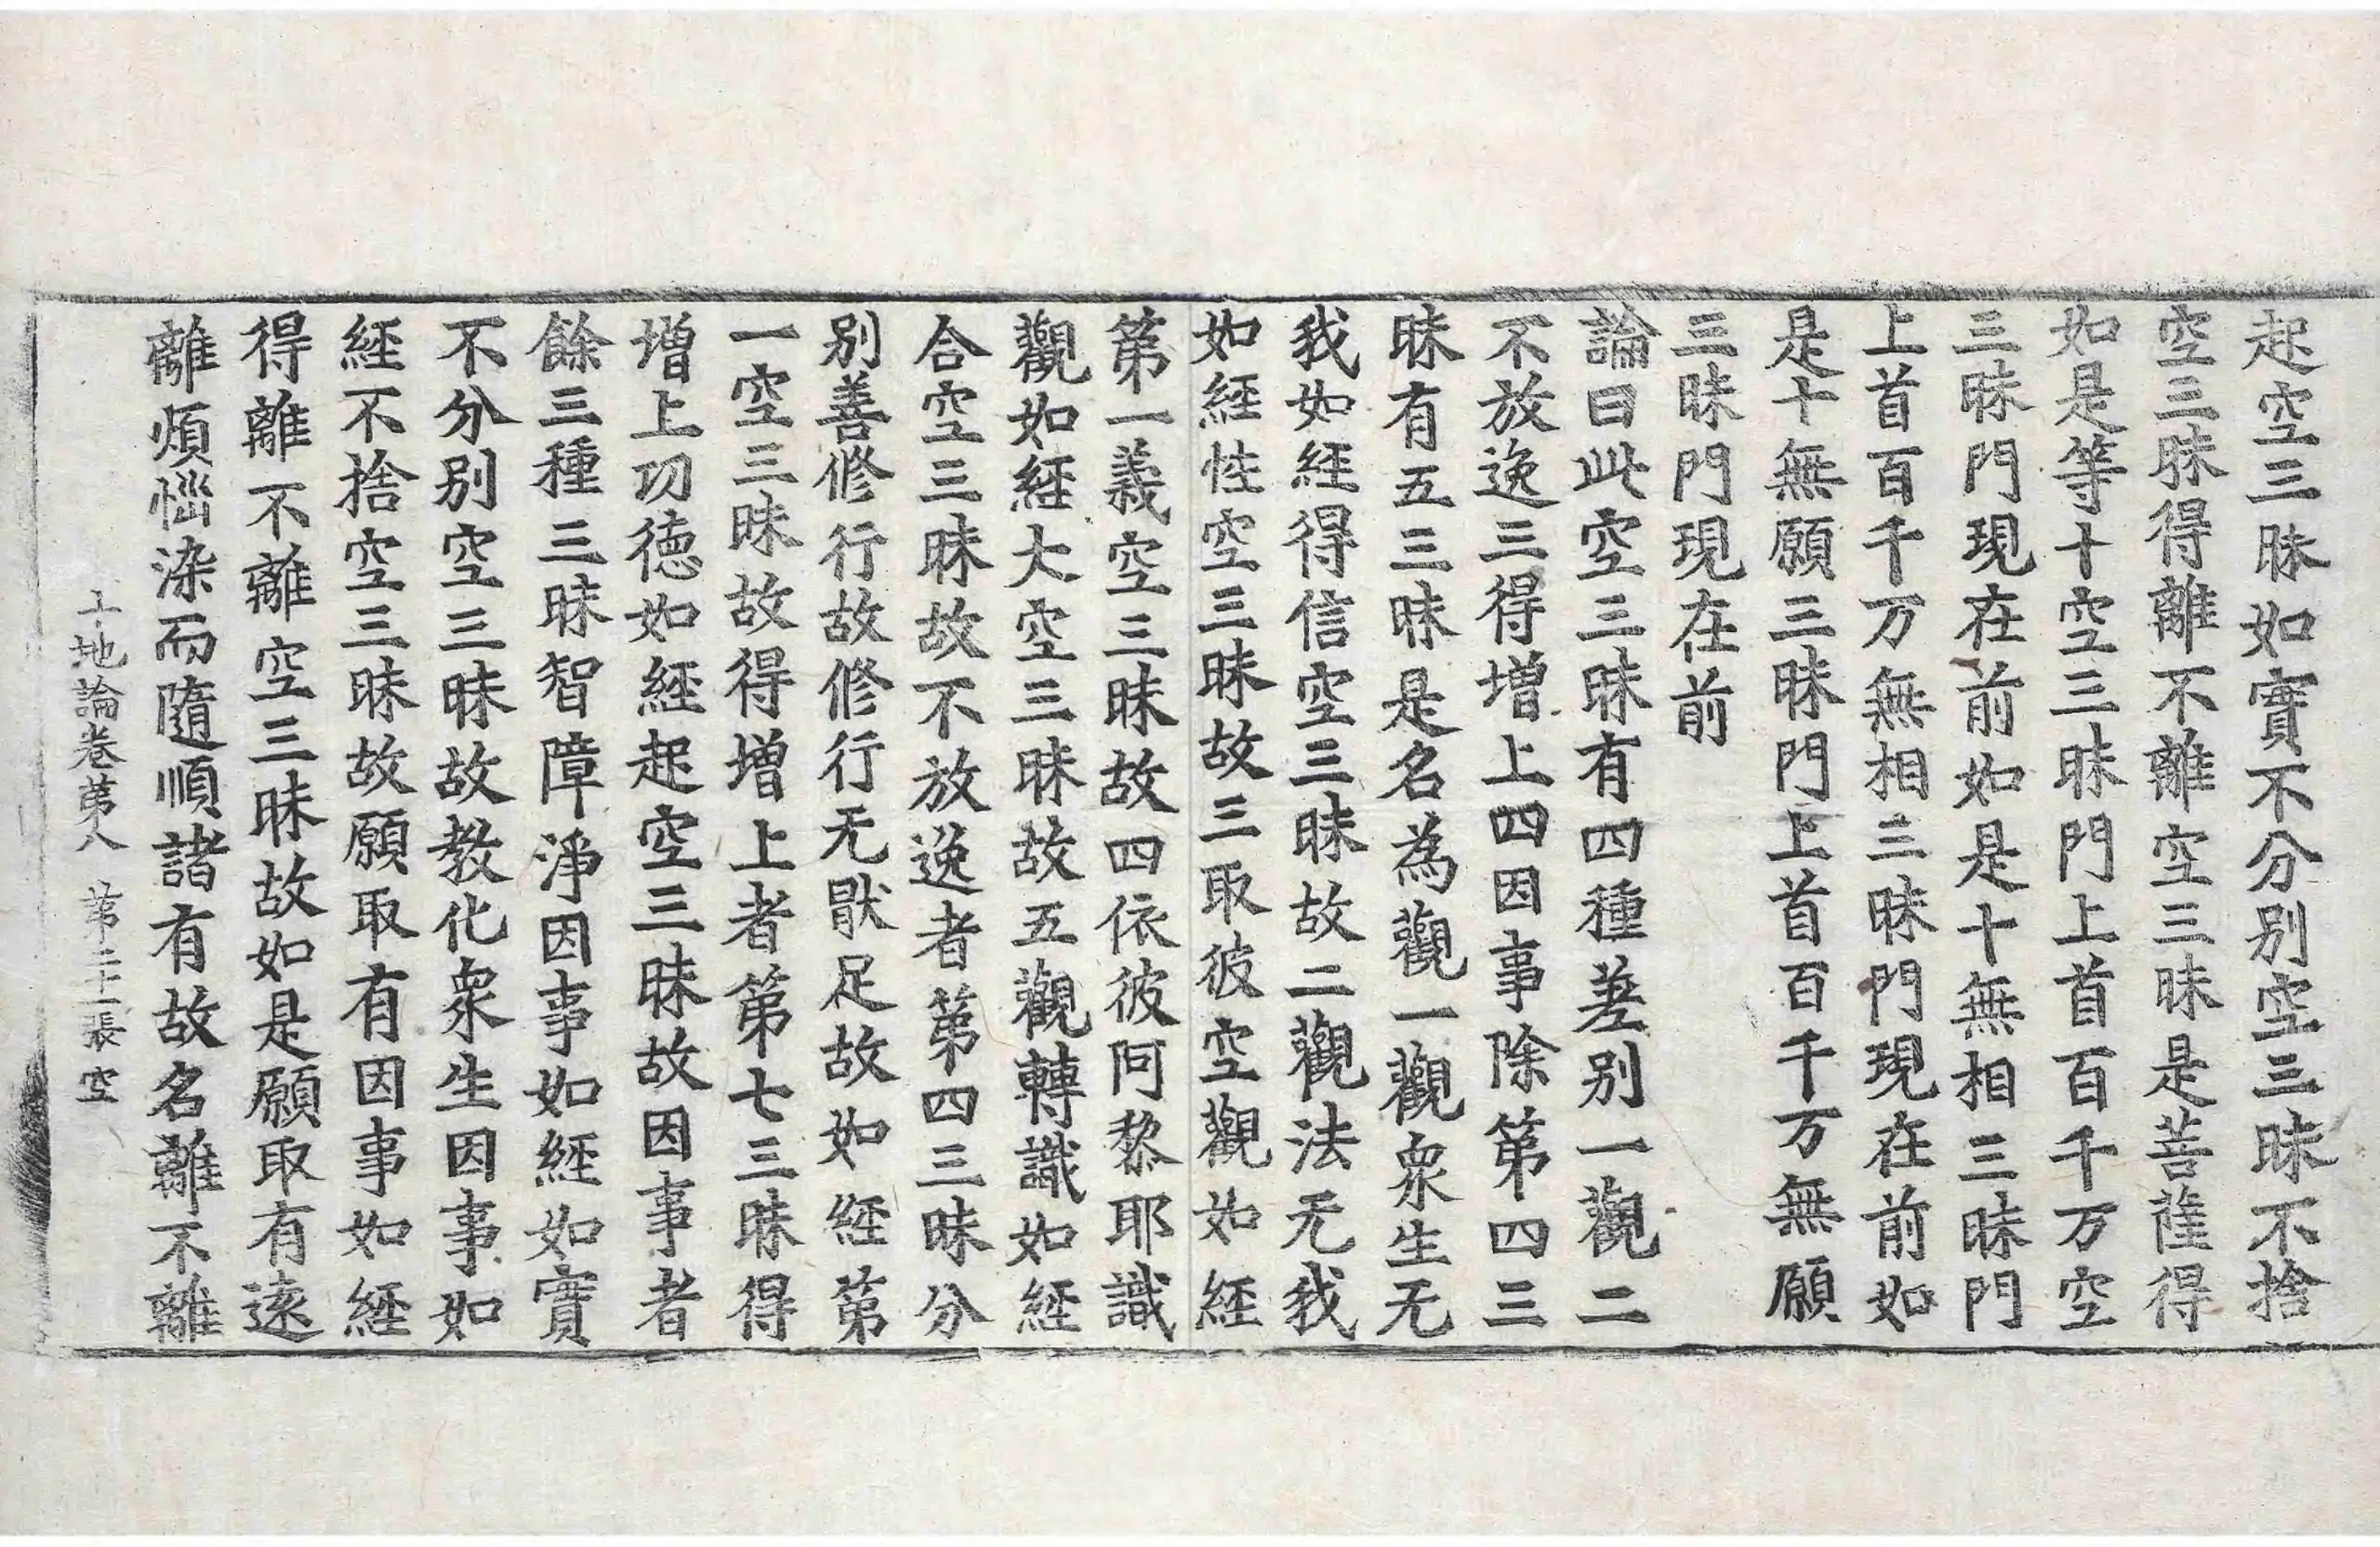 起空三昧如實不分別空三昧不捨
空三昧得離不離空三昧是菩薩得
如是等十空三昧門上首百千万空
三昧門現在前如是十無相三昧門
上首百千万無相三昧門現在前如
是十無願三昧門上首百千万無願
三昧門現在前
論曰此空三昧有四種差别一觀二
不放逸三得增上四因事除第四三
昧有五三昧是名為觀一觀衆生无
我如經得信空三昧故二觀法无我
如經性空三昧故三取彼空觀如經
第一義空三昧故四依彼阿黎耶識
觀如經大空三昧故五觀轉識如經
合空三昧故不放逸者第四三昧分
别善修行故修行无猒足故如經第
一空三昧故得增上者第七三昧得
增上功德如經起空三昧故因事者
餘三種三昧智障淨因事如經如實
不分别空三昧故教化衆生因事如
經不捨空三昧故願取有因事如經
得離不離空三昧故如是願取有遠
離煩惱染而隨順諸有故名離不離
十地論卷第八 第二十二張 空